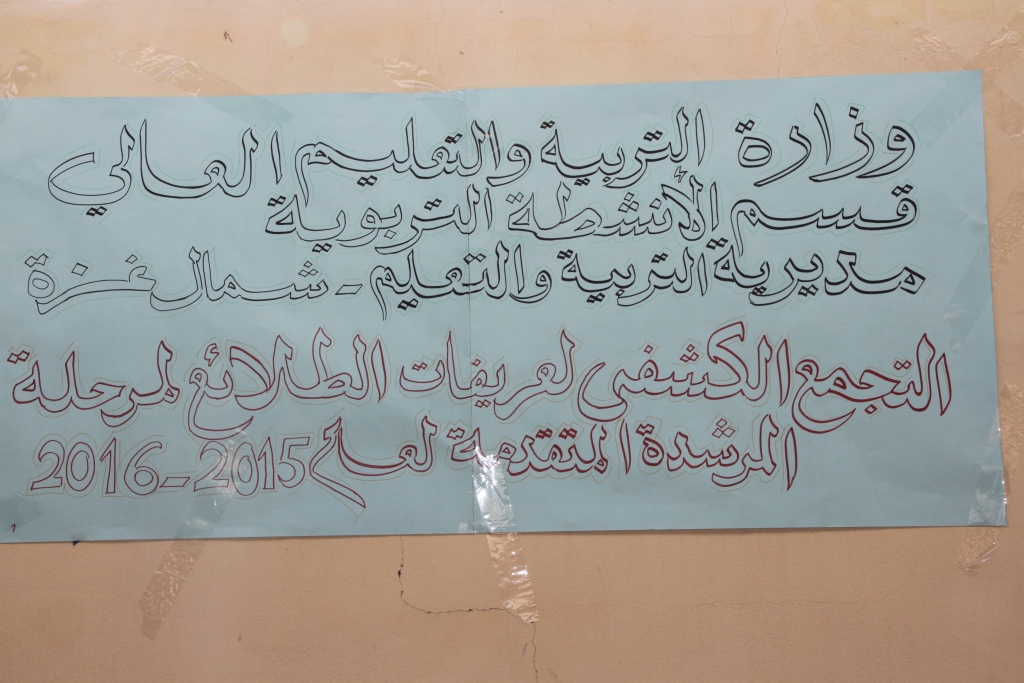 وزارة التربية والتعليم العالي
قسم الأنشطة التربوية
مديرية التربية والتعليم - شمال غزة
التجمع الكشفي لعريفات الطلائع لمرحلة
المرشدة المتقدمة لعام 2015-2016